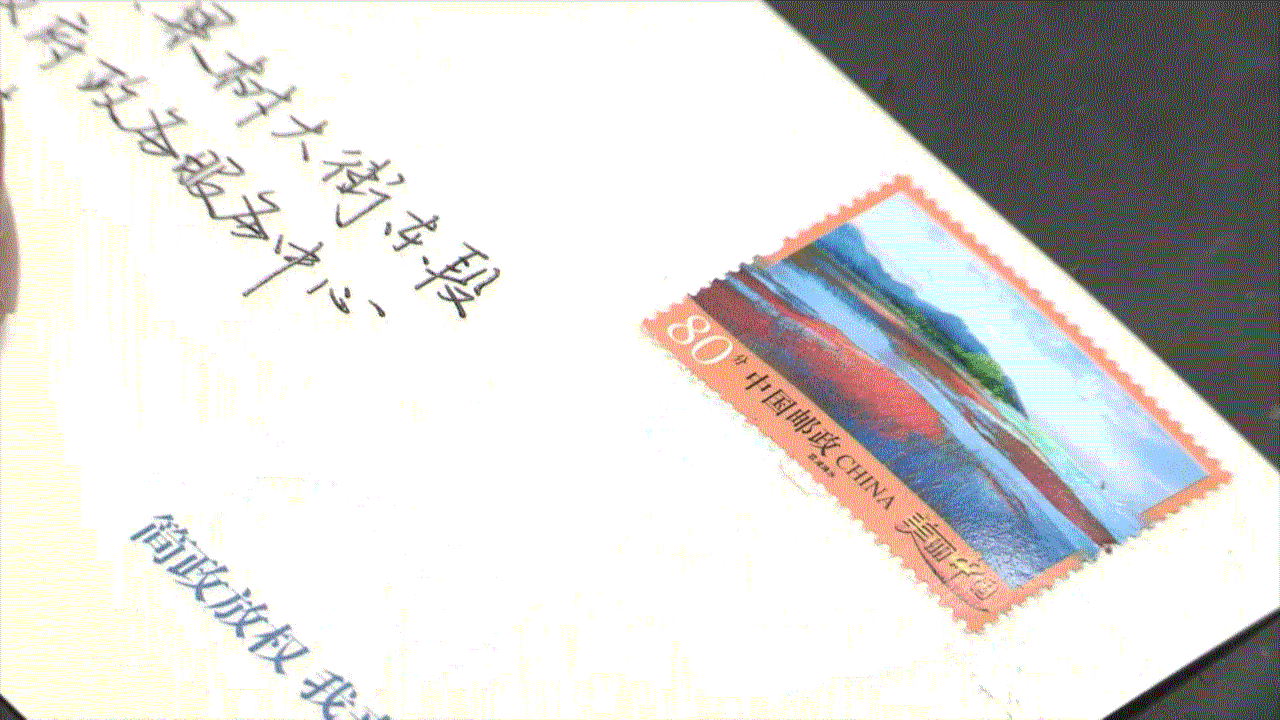 树大街东段
府政务服务中心
80分 中国邮政 CHINA 美丽中国
简政放权 我